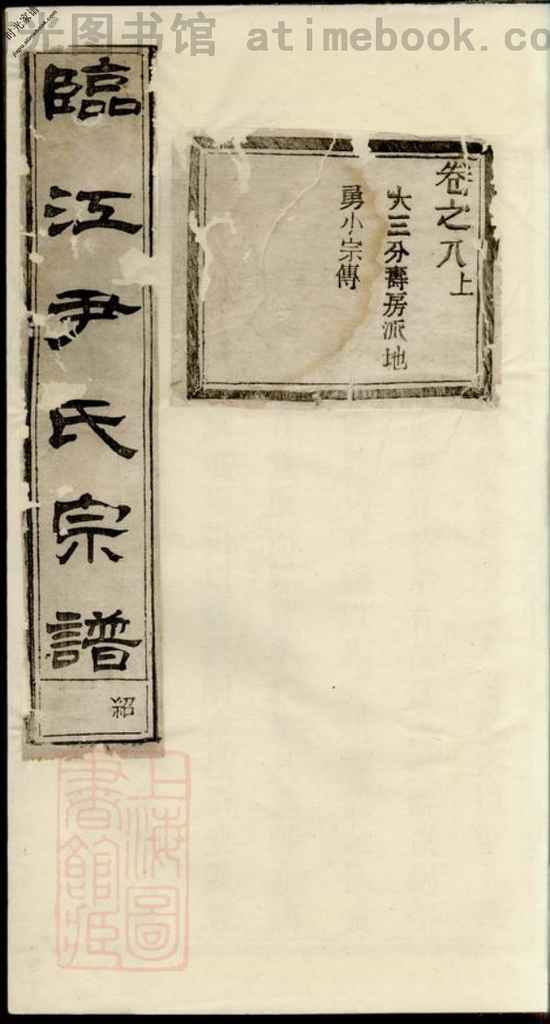 光图书馆 atimebook.com
时光家谱
卷之八上
大三分壽房派地
勇小宗傳
臨江尹氏宗譜
紹
上海圖書館藏